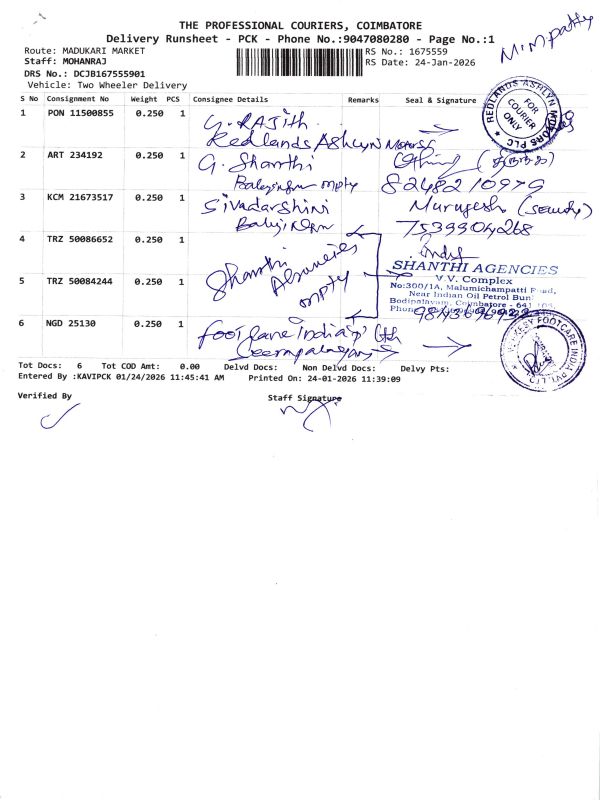 THE PROFESSIONAL COURIERS, COIMBATORE
Delivery Runsheet - PCK - Phone No.:9047080280 - Page No.:1
M.M.patty
Route: MADUKARI MARKET
RS No.: 1675559
Staff: MOHANRAJ
RS Date: 24-Jan-2026
DRS No.: DCJB167555901
Vehicle: Two Wheeler Delivery
S No Consignment No Weight PCS Consignee Details Remarks Seal & Signature
1 PON 11500855 0.250 1 G. RAJith
Redlands Ashlyn Motors
REDLANDS ASHLYN MOTORS PLC
FOR COURIER ONLY
2 ART 234192 0.250 1 G. Shanthi
8248210979
3 KCM 21673517 0.250 1 Sivadarshini
Murugesh (Security)
7539904268
4 TRZ 50086652 0.250 1
5 TRZ 50084244 0.250 1 Shanthi
SHANTHI AGENCIES
V.V. Complex
No:300/1A, Malumichampatti Road,
Near Indian Oil Petrol Bunk
Bodipalayam, Coimbatore - 641 105
Phone
6 NGD 25130 0.250 1 India P Ltd
FOOTCARE INDIA PVT. LTD
Tot Docs: 6 Tot COD Amt: 0.00 Delvd Docs: Non Delvd Docs: Delvy Pts:
Entered By :KAVIPCK 01/24/2026 11:45:41 AM Printed On: 24-01-2026 11:39:09
Verified By
Staff Signature